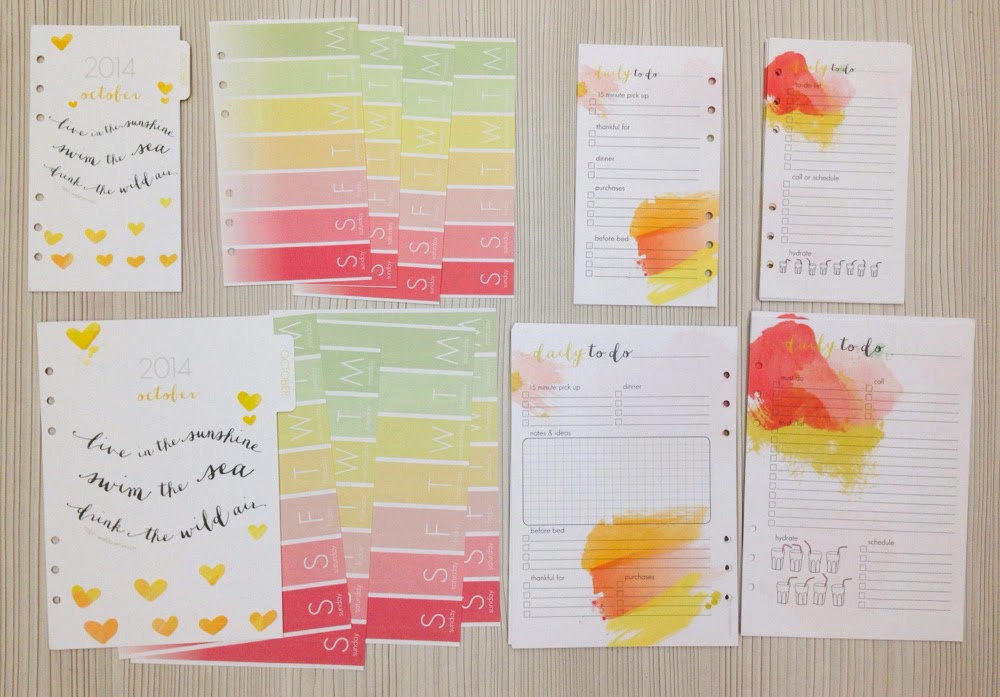 2014
october
live in the sunshine
swim the sea
drink the wild air
M
T
W
T
F
S
saturday
S
sunday
M
T
W
T
F
S
saturday
S
sunday
M
T
W
T
F
S
saturday
S
sunday
M
T
W
T
F
S
saturday
S
sunday
daily to do
15 minute pick up
thankful for
dinner
purchases
before bed
daily to do
to-do list
call or schedule
hydrate
2014
october
OCTOBER
live in the sunshine
swim the sea
drink the wild air
W
T
F
S
S
sunday
M
T
W
T
F
S
saturday
S
sunday
daily to do
15 minute pick up
dinner
notes & ideas
before bed
thankful for
purchases
daily to do
must do
call
hydrate
schedule